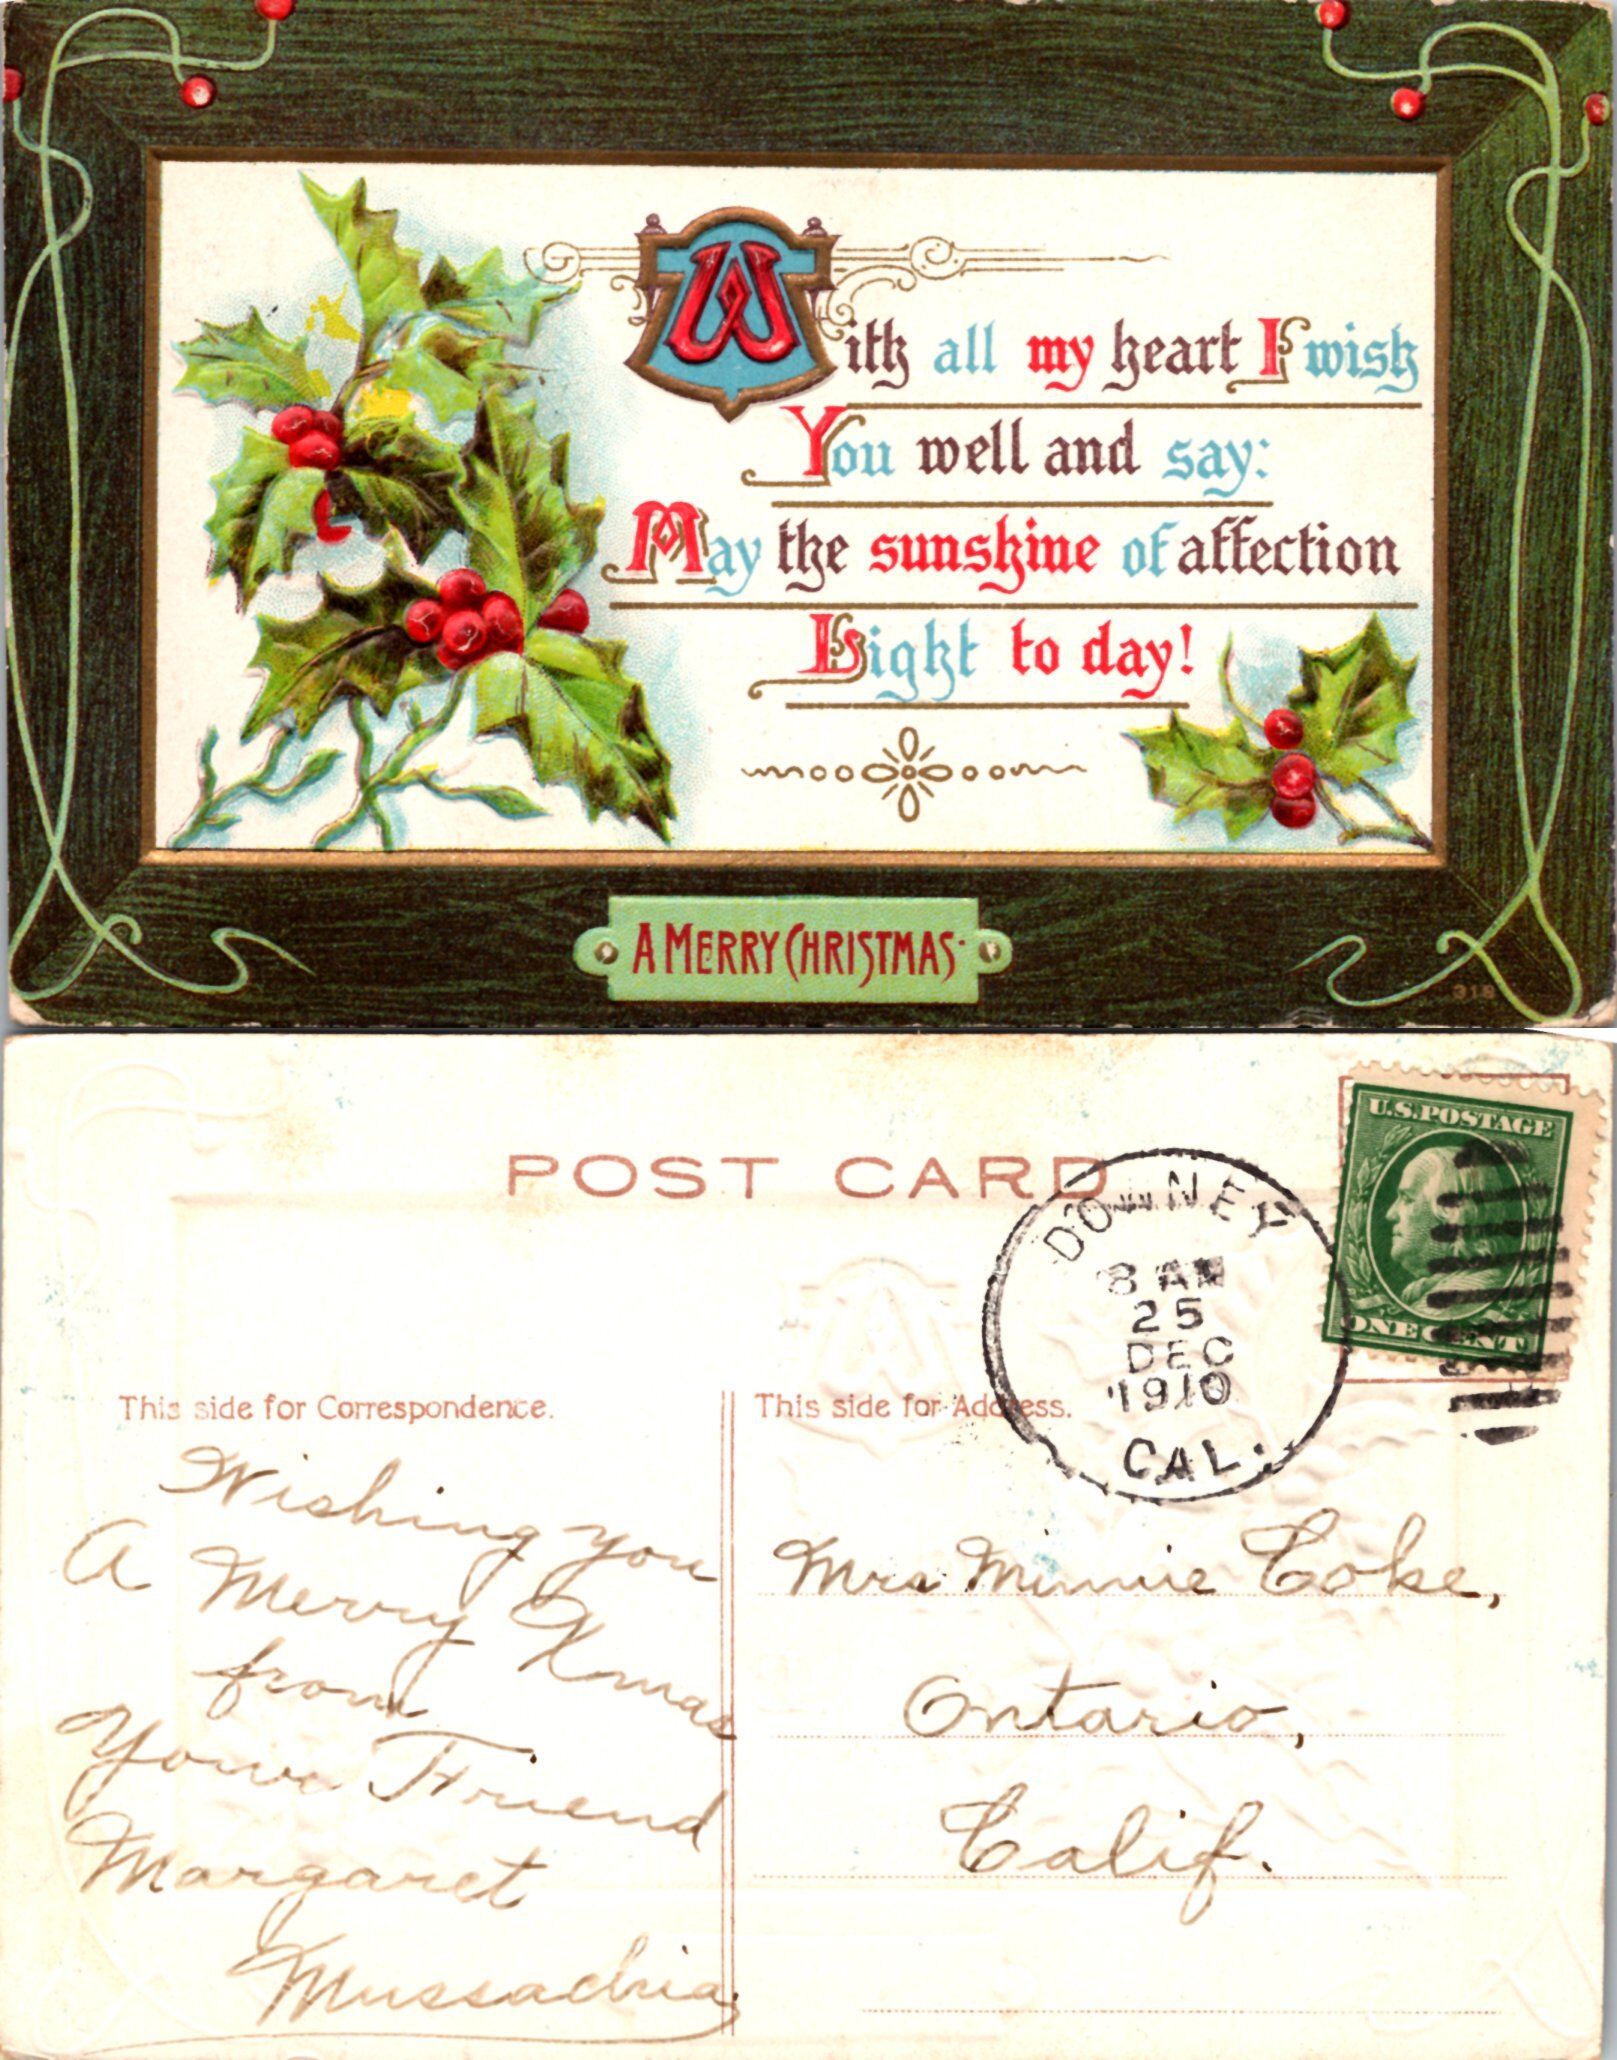 With all my heart I wish
You well and say:
May the sunshine of affection
Light to day!
A MERRY CHRISTMAS
318
POST CARD
DOWNEY
8 AM
25
DEC
1910
CAL.
U.S.POSTAGE
ONE CENT
This side for Correspondence.
This side for Address.
Wishing you
A Merry Xmas
from
Your Friend
Margaret
Mussachia
Mrs Minnie Coke,
Ontario,
Calif.